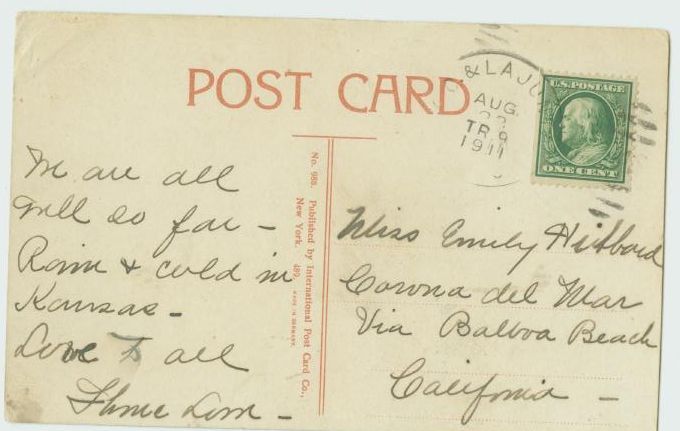 POST CARD
& LA JU
AUG
TR 8
1911
U.S. POSTAGE
ONE CENT
We are all
well so far -
Rain & cold in
Kansas -
Love to all
No. 989. Published by International Post Card Co.,
New York. 489. MADE IN GERMANY.
Miss Emily Hibbard
Corona del Mar
Via Balboa Beach
California -